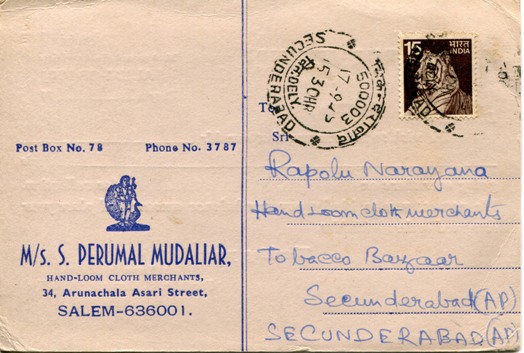 15 भारत
INDIA
SECUNDERABAD
N.DELY.
500003
17-9
5 30HR
To
Sri
Post Box No. 78 Phone No. 3787
M/s. S. PERUMAL MUDALIAR,
HAND-LOOM CLOTH MERCHANTS,
34, Arunachala Asari Street,
SALEM-636001.
Rapolu Narayana
Handloom cloth merchants
Tobacco Bazaar
Secunderabad (AP)
SECUNDERABAD (AP)